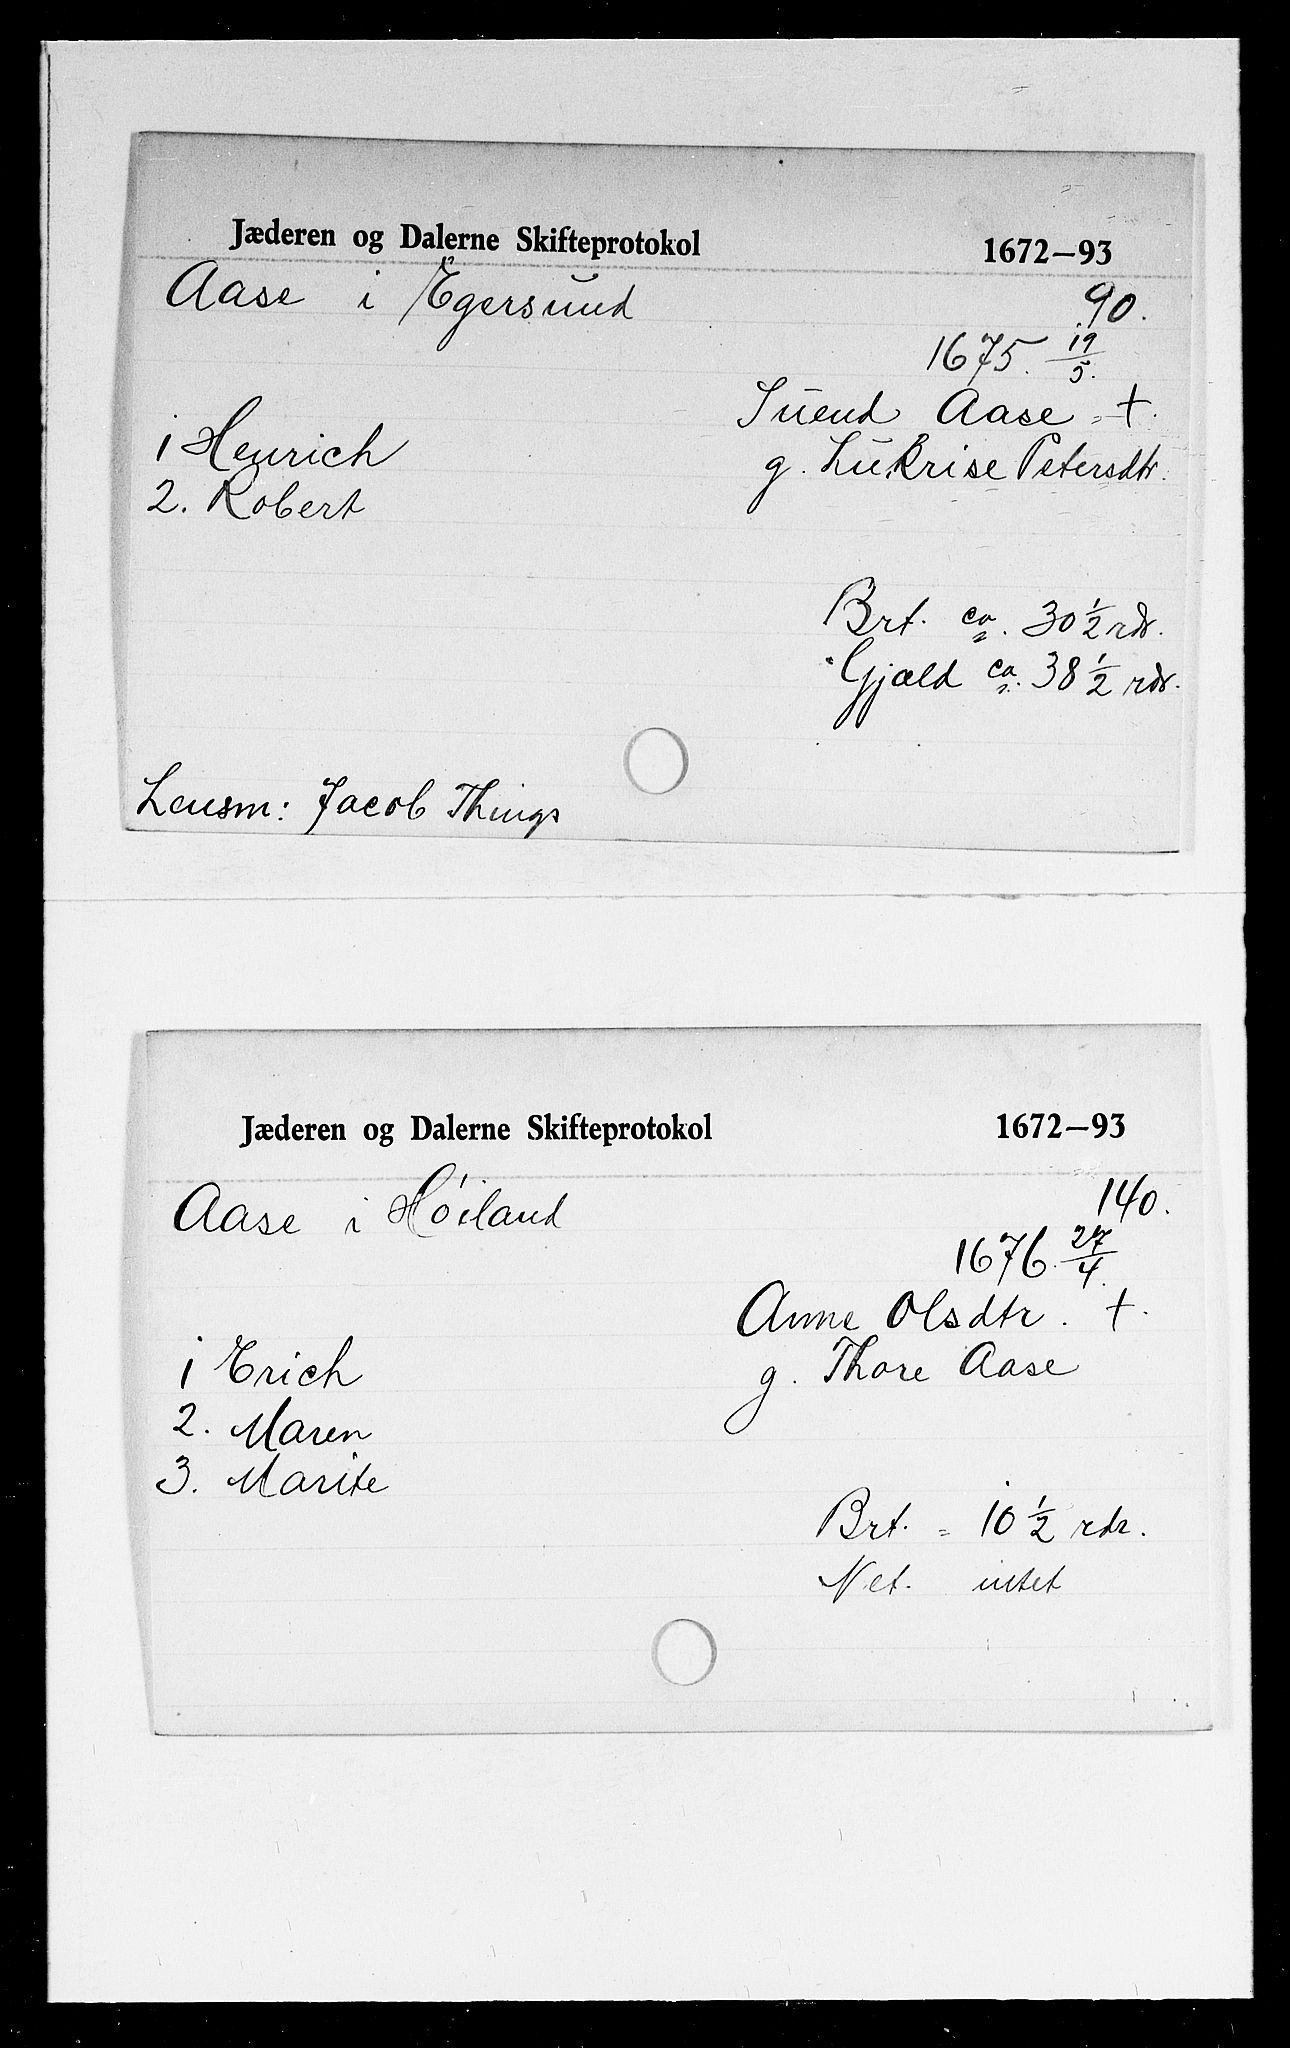 Jæderen og Dalerne Skifteprotokol 1672–93
Aase i Egersund 90.
1675. 19/5.
Suend Aase - †.
1 Henrich g. Lukrise Petersdtr.
2. Robert
Brt. ca. 30 1/2 rdr.
Gjæld ca. 38 1/2 rdr.
Lensm: Jacob Things
Jæderen og Dalerne Skifteprotokol 1672–93
Aase i Höiland 140.
1676. 27/4.
Anne Olsdtr. †.
1 Erich g. Thore Aase
2. Maren
3. Marite
Brt. = 10 1/2 rdr.
Net. intet